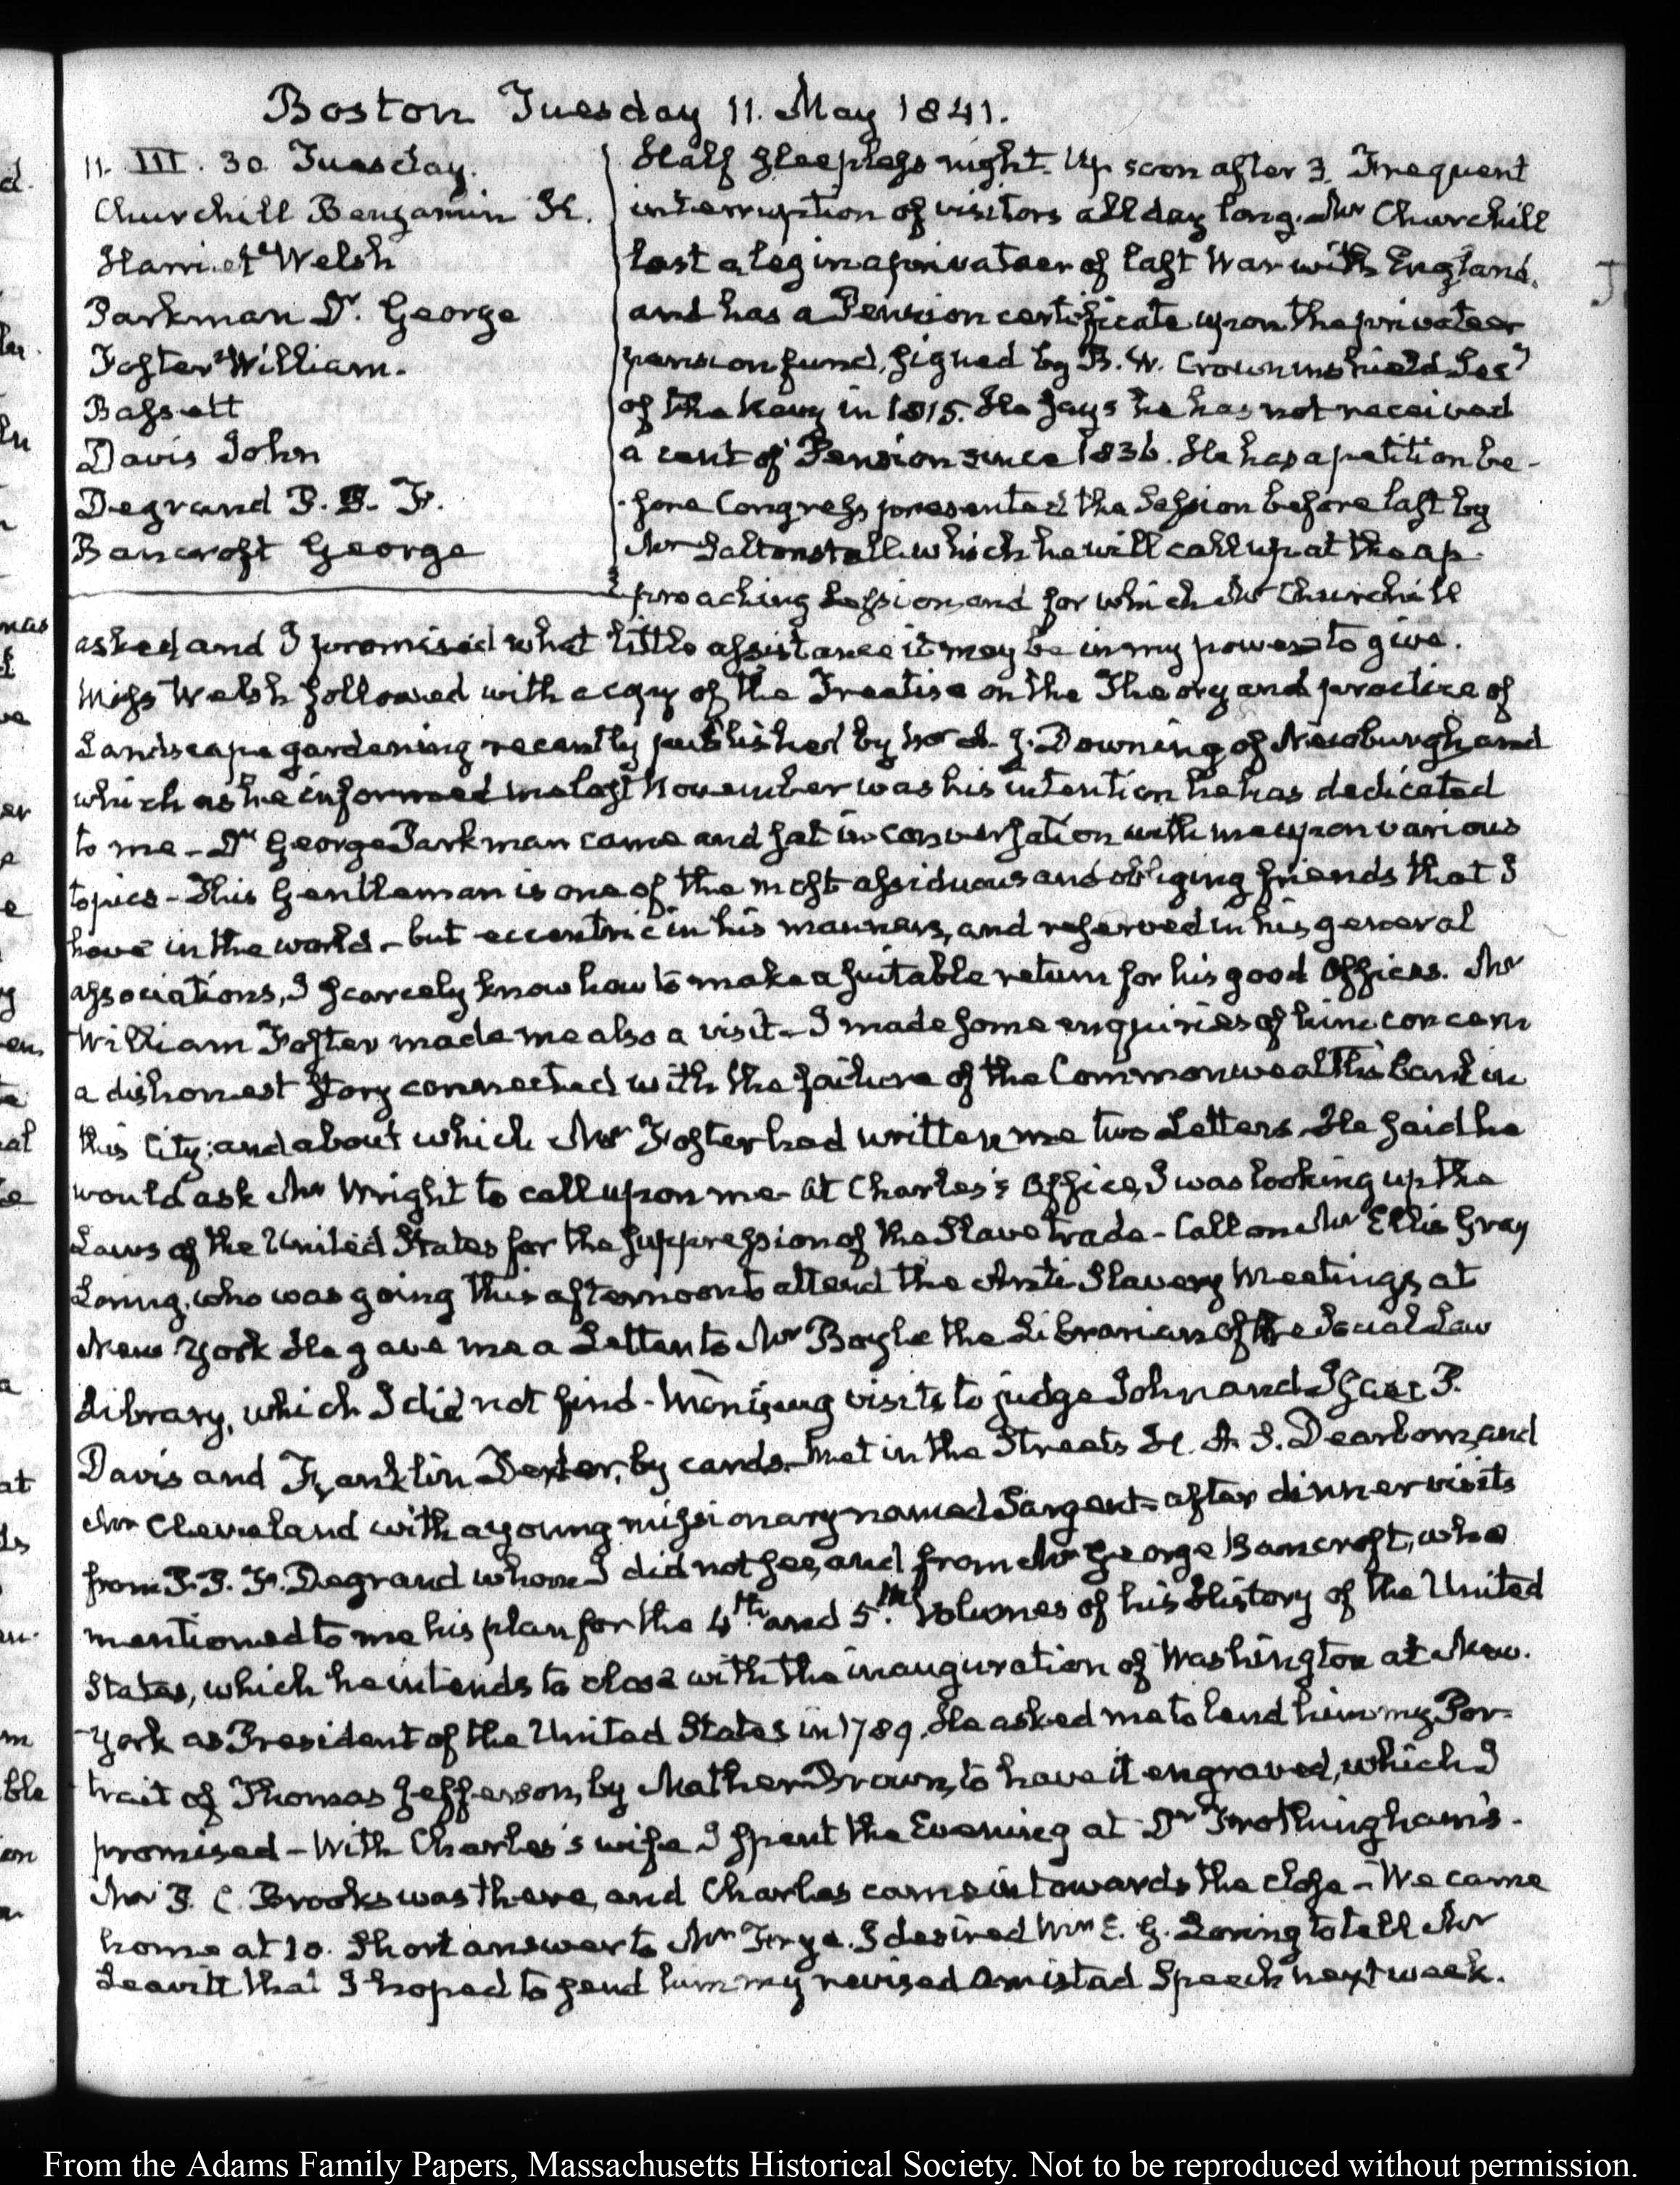 Boston Tuesday 11. May 1841.
11. III. 30. Tuesday.
Churchill Benjamin K.
Harriet Welsh
Parkman Dr. George
Foster William.
Bassett
Davis John
Degrand P. P. F.
Bancroft George
Half sleepless night. Up soon after 3. Frequent
interruption of visitors all day long. Mr Churchill
lost a leg in a privateer of last War with England.
and has a Pension certificate upon the privateer
pension fund, signed by B. W. Crowninshield Secy
of the Navy in 1815. He says he has not received
a cent of Pension since 1836. He has a petition be-
-fore Congress presented the Session before last by
Mr Saltonstall which he will call up at the ap-
proaching Session, and for which Mr Churchill
asked and I promised what little assistance it may be in my power to give.
Miss Welsh followed with a copy of the Treatise on the Theory and practice of
Landscape gardening recently published by Mr A. J. Downing of Newburgh, and
which as he informed me last November was his intention he has dedicated
to me - Dr George Parkman came and sat in conversation with me upon various
topics - This Gentleman is one of the most assiduous and obliging friends that I
have in the world - but eccentric in his manners, and reserved in his general
associations, I scarcely know how to make a suitable return for his good Offices. Mr
William Foster made me also a visit - I made some enquiries of him concern
a dishonest story connected with the failure of the Commonwealth bank in
this City; and about which Mr Foster had written me two Letters. He said he
would ask Mr Wright to call upon me - At Charles's Office, I was looking up the
Laws of the United States for the suppression of the Slave trade - Call on Mr Ellis Gray
Loring, who was going this afternoon to attend the Anti Slavery Meetings at
New York He gave me a Letter to Mr Boyle the Librarian of the Social Law
Library, which I did not find - Morning visits to judge John and Isaac P.
Davis and Franklin Dexter, by cards - Met in the Streets H. A. S. Dearborn, and
Mr Cleveland with a young missionary named Sargent - after dinner visits
from P. P. F. Degrand whom I did not see, and from Mr George Bancroft, who
mentioned to me his plan for the 4th and 5th Volumes of his History of the United
States, which he intends to close with the inauguration of Washington at New-
York as President of the United States in 1789. He asked me to lend him my Por-
trait of Thomas Jefferson, by Mather Brown, to have it engraved, which I
promised - With Charles's wife I spent the Evening at Dr Frothingham's -
Mr P. C. Brooks was there, and Charles came in towards the close - We came
home at 10. Short answer to Mr Forye. I desired Mr E. G. Loring to tell Mr
Leavitt that I hoped to send him my revised Amistad Speech next week.
From the Adams Family Papers, Massachusetts Historical Society. Not to be reproduced without permission.